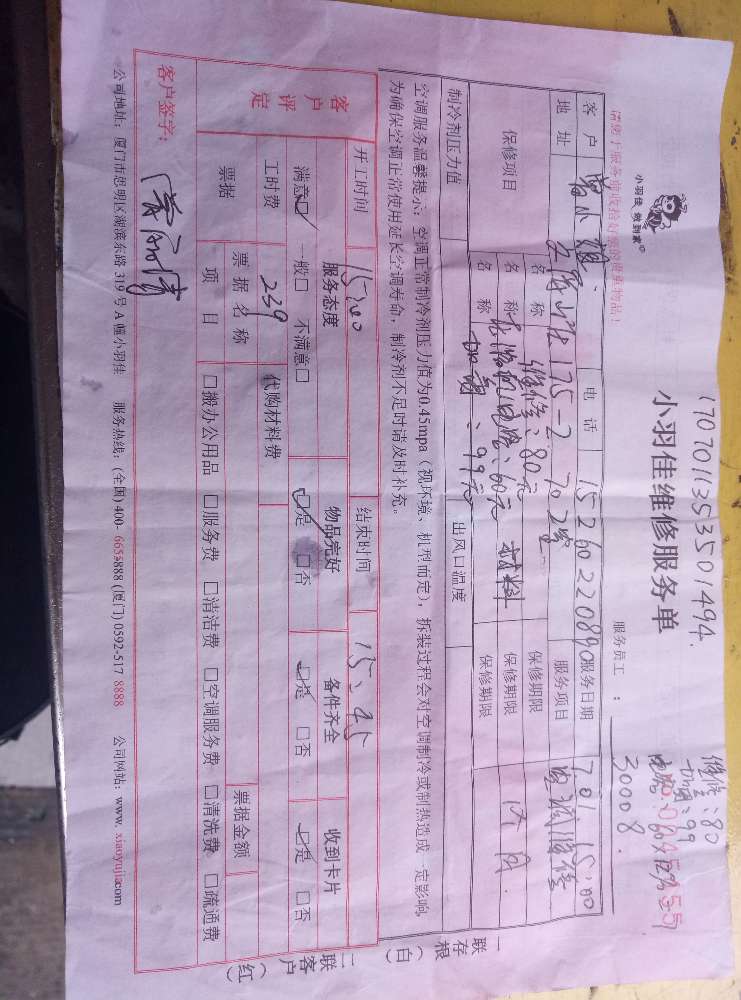 小羽佳 做到家
17070113535501494
小羽佳维修服务单
服务员工：
20008
维修：80
加氟：99
请您于服务前收拾好您的贵重物品！
客户
电话
15260220890
服务日期
7.01 15:00
地址
175-2 702室
服务项目
空调维修
保修项目
名称
维修：80元
保修期限
名称
电容：60元
材料
保修期限
名称
加氟：99元
保修期限
制冷剂压力值
出风口温度
空调服务温馨提示：空调正常制冷剂压力值为0.45mpa（视环境、机型而定），拆装过程会对空调制冷或制热造成一定影响，
为确保空调正常使用延长空调寿命，制冷剂不足时请及时补充。
一联存根（白）
二联客户（红）
开工时间
15:00
结束时间
15:45
客户评定
服务态度
物品完好
备件齐全
收到卡片
满意☑ 一般□ 不满意□
☑是 □否
☑是 □否
☑是 □否
工时费
239
代购材料费
票据
票据名称
票据金额
项目
□搬办公用品 □服务费 □清洁费 □空调服务费 □清洗费 □疏通费
客户签字：
公司地址：厦门市思明区湖滨东路 319 号 A 幢小羽佳 服务热线：(全国) 400-6655888 (厦门) 0592-517 8888 公司网站：www. xiaoyujia.com